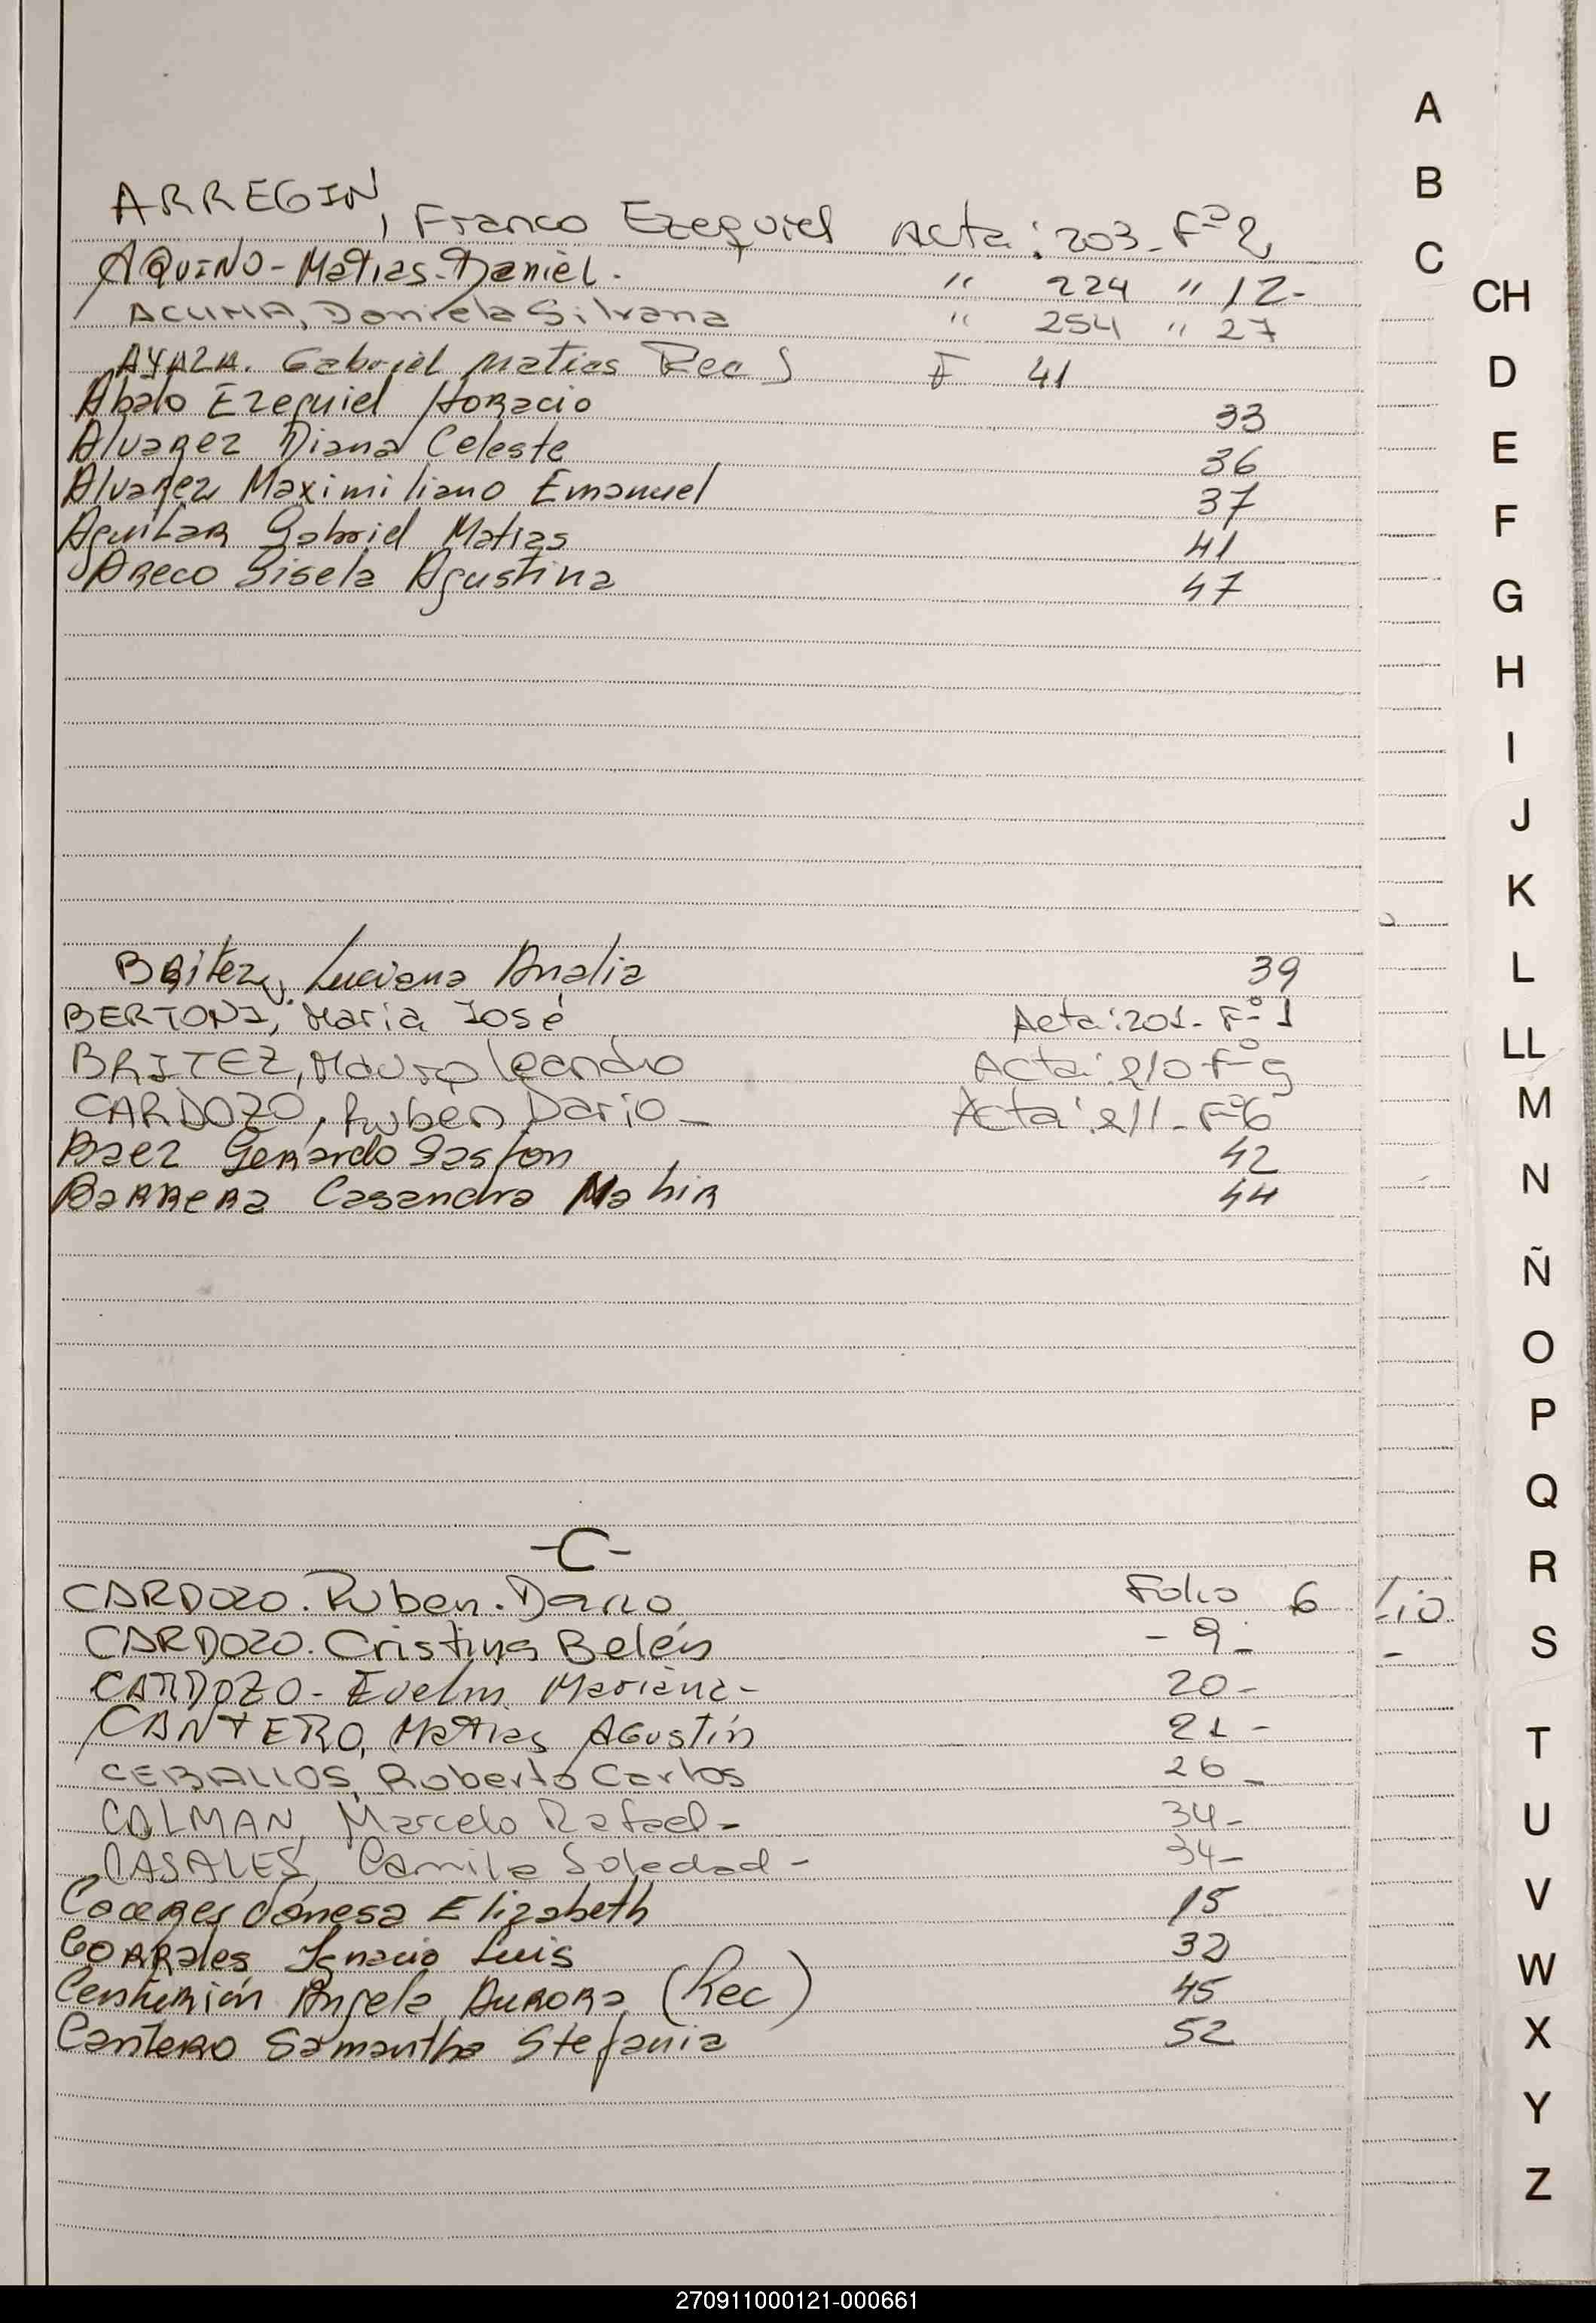 ARREGIN, Franco Ezequiel Acta: 203- Fº 2
AQUINO- Matias- Daniel. " 224 " 12-
ACUÑA, Daniela Silvana " 254 " 27
AYALA. Gabriel Matias Rec F 41
Abalo Ezequiel Horacio 33
Alvarez Diana Celeste 36
Alvarez Maximiliano Emanuel 37
Aguilar Gabriel Matias 41
Areco Gisela Agustina 47
Britez, Luciana Analia 39
BERTONI, Maria José Acta: 201- Fº 1
BRITEZ, Mauro Leandro Acta: 210 Fº 5
CARDOZO, Ruben Dario- Acta: 211- Fº 6
Baez Gerardo Gaston 42
Barrera Casandra Mahir 44
-C-
CARDOZO. Ruben. Dario Folio 6
CARDOZO. Cristina Belén - 9-
CARDOZO- Evelin Mariana- 20-
CANTERO, Matias Agustín 21-
CEBALLOS, Roberto Carlos 26-
COLMAN, Marcelo Rafael- 34-
CASALES, Camila Soledad- 34-
Caceres Vanesa Elizabeth 15
Corrales Ignacio Luis 32
Centurión Angela Aurora (Rec) 45
Cantero Samantha Stefania 52
A
B
C
CH
D
E
F
G
H
I
J
K
L
LL
M
N
Ñ
O
P
Q
R
S
T
U
V
W
X
Y
Z
270911000121-000661